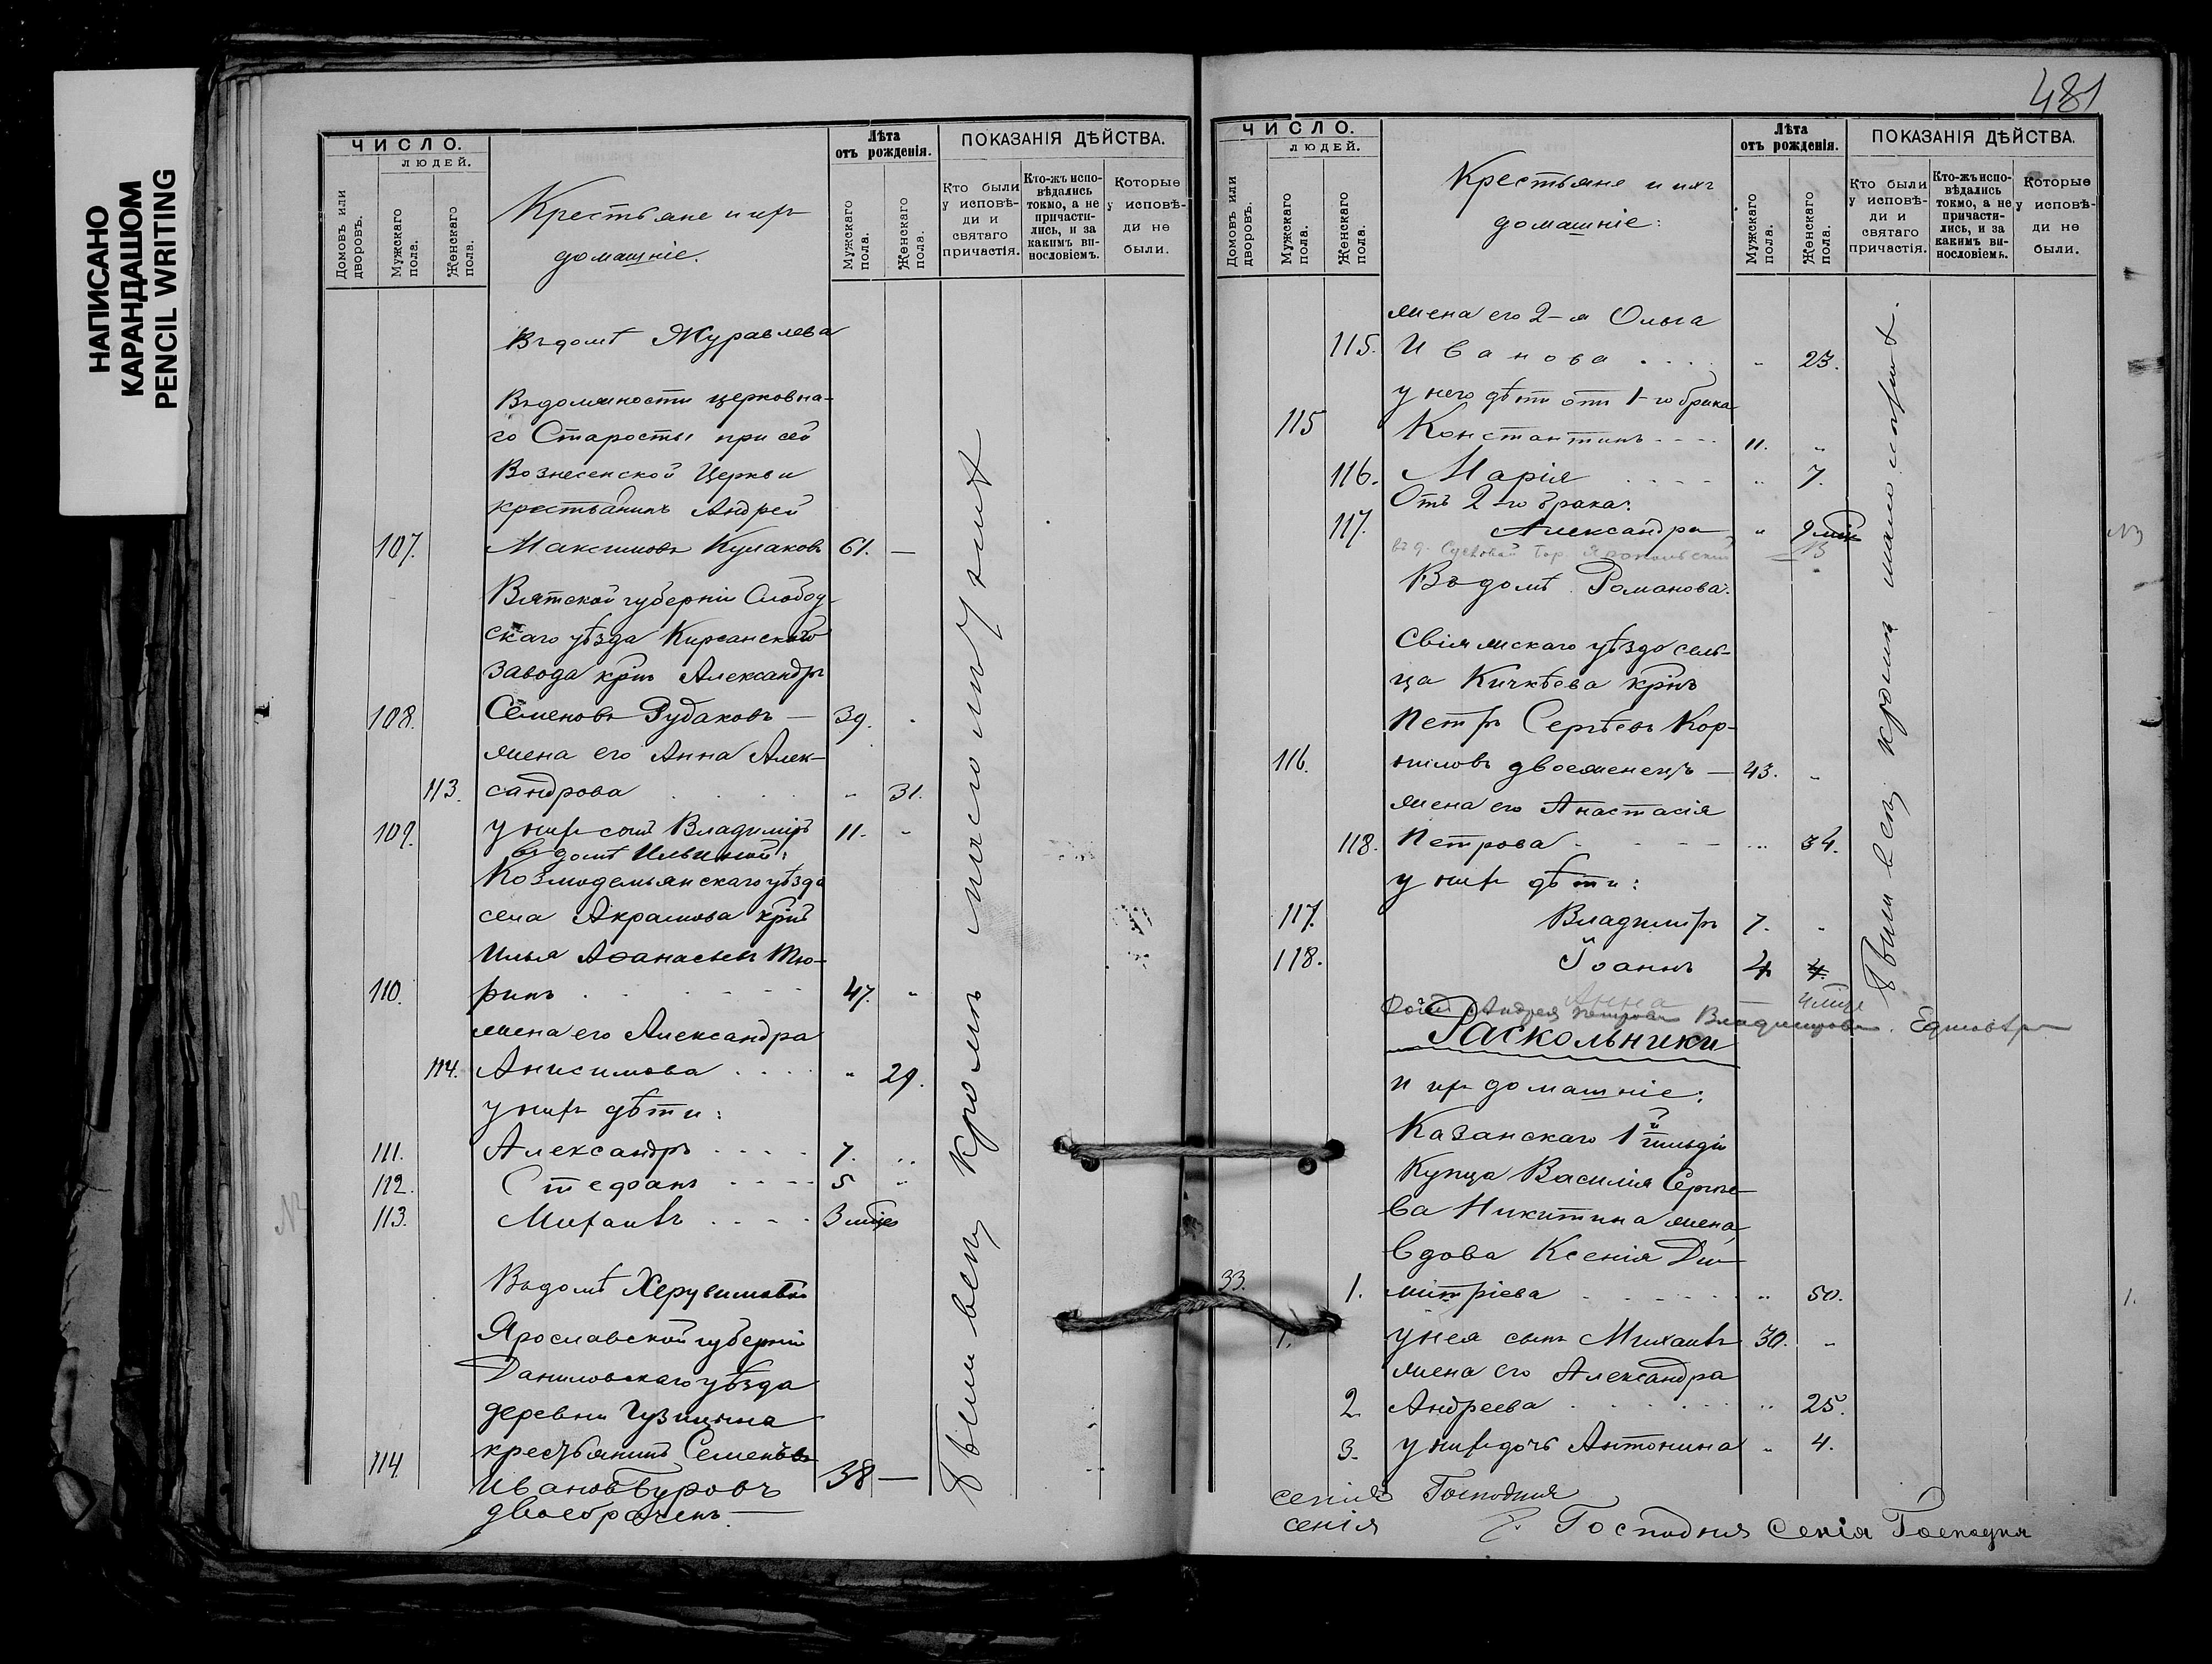 НАПИСАНО
КАРАНДАШОМ
PENCIL WRITING
ЧИСЛО.
ЛЮДЕЙ.
Домовъ или дворовъ.
Мужскаго пола.
Женскаго пола.
Крестьяне и ихъ
домашніе.
Лѣта
отъ рожденія.
Мужскаго пола.
Женскаго пола.
ПОКАЗАНІЯ ДѢЙСТВА.
Кто были у исповѣди и святаго причастія.
Кто-жъ исповѣдались токмо, а не причастились, и за какимъ винословіемъ.
Которые у исповѣди не были.
Въ домѣ Журавлева
Въ должности церковна-
го Старосты при сей
Вознесенской Церкви
крестьянинъ Андрей
107. Максимовъ Кулаковъ 61. —
Вятской губерніи Слобод-
скаго уѣзда Кирсанскаго
завода крнъ Александръ
108. Семеновъ Рудаковъ — 39. "
жена его Анна Алек-
113. сандрова " 31.
109. у нихъ сынъ Владиміръ 11. "
въ домѣ Ильиной:
Козмодемьянскаго уѣзда
села Акрамова крнъ
Илья Аѳанасьевъ Тю-
110. ринъ 47. "
жена его Александра
114. Анисимова " 29.
у нихъ дѣти:
111. Александръ 7. "
112. Стефанъ 5 "
113. Михаилъ 3 мѣс
Въ домѣ Херувимовой
Ярославской губерніи
Даниловскаго уѣзда
деревни Гузицына
крестьянинъ Семенъ
114 Ивановъ Буровъ 38 —
двоебраченъ —
Были всѣ, кромѣ малолѣтнихъ
481
ЧИСЛО.
ЛЮДЕЙ.
Домовъ или дворовъ.
Мужскаго пола.
Женскаго пола.
Крестьяне и ихъ
домашніе:
Лѣта
отъ рожденія.
Мужскаго пола.
Женскаго пола.
ПОКАЗАНІЯ ДѢЙСТВА.
Кто были у исповѣди и святаго причастія.
Кто-жъ исповѣдались токмо, а не причастились, и за какимъ винословіемъ.
Которые у исповѣди не были.
жена его 2-я Ольга
115. Иванова " 23.
у него дѣти отъ 1-го брака
115 Константинъ 11. "
116. Марія " 7.
Отъ 2-го брака:
117. Александра "
Въ домѣ Романова.
Свіяжскаго уѣзда сель-
ца Кичкѣева крнъ
Петръ Сергѣевъ Кор-
116. ниловъ двоеженецъ — 43. "
жена его Анастасія
118. Петрова " 34.
у нихъ дѣти:
117. Владиміръ 7. "
118. Іоаннъ 4
Анна
Раскольники
и ихъ домашніе:
Казанскаго 1й гильдіи
Купца Василія Сергѣе-
ва Никитина жена
вдова Ксенія Ди-
33. 1. митріева " 50. 1.
1. у нея сынъ Михаилъ 30. "
жена его Александра
2 Андреева " 25.
3. у нихъ дочь Антонина " 4.
Были всѣ, кромѣ малолѣтнихъ.
сенія Господня
сенія Господня Сенія Господня